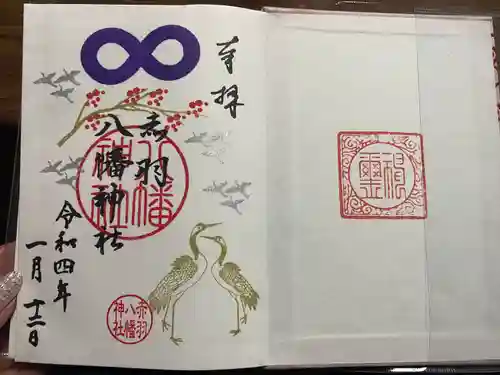 奉拝
赤羽
八幡神社
令和四年
一月十二日
八幡神社
赤羽
八幡
神社